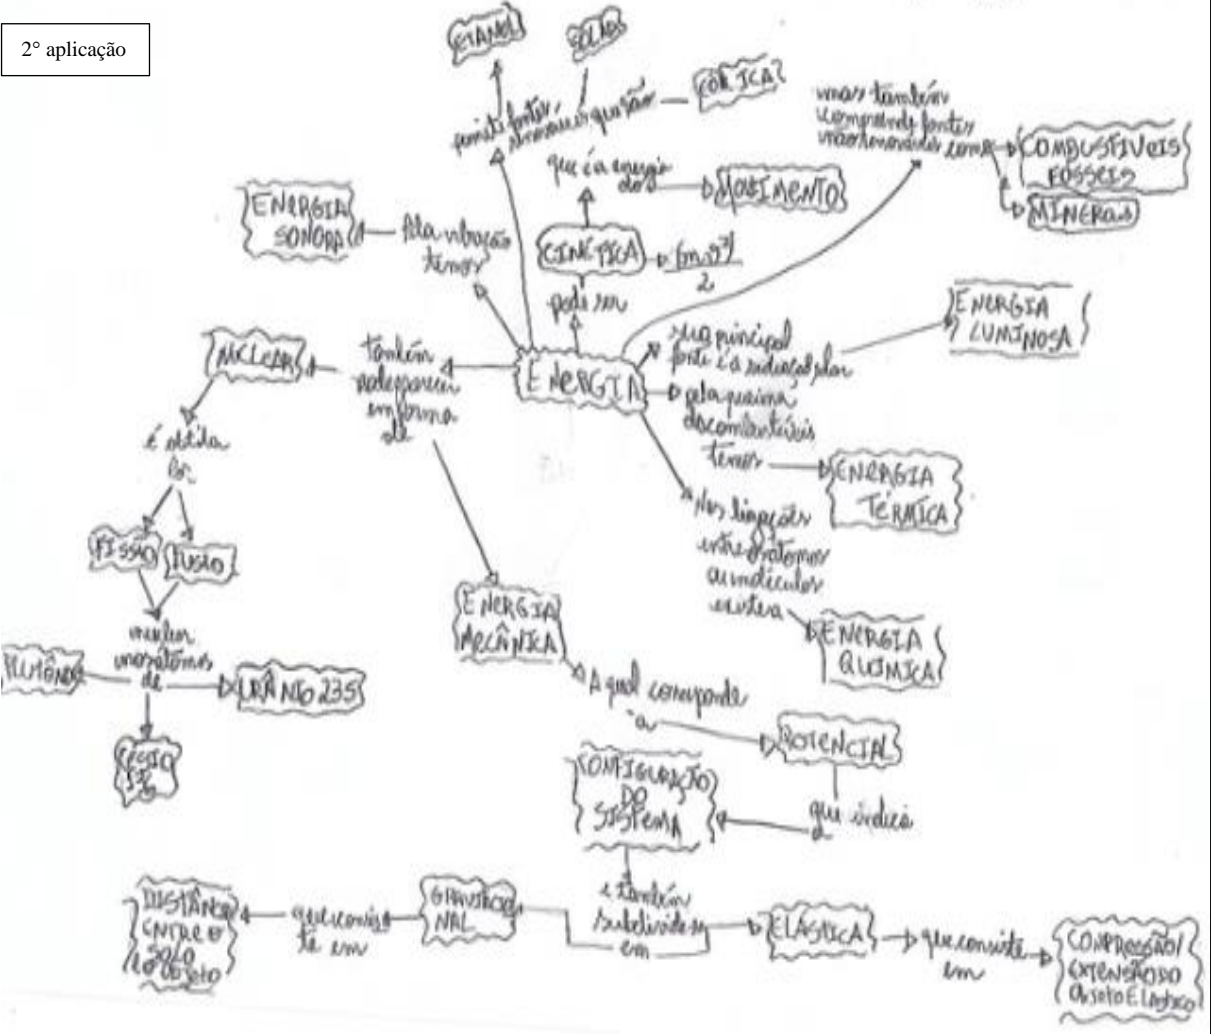 2° aplicação
ETANOL
SOLAR
EÓLICA
fontes
que são
mas também
compreende fontes
não renováveis como
COMBUSTÍVEIS
FÓSSEIS
MINERAIS
que é a energia
dos
MOVIMENTO
ENERGIA
SONORA
Pela vibração
temos
CINÉTICA
2
pode ser
ENERGIA
LUMINOSA
sua principal
fonte é a radiação solar
NUCLEAR
também
pode aparecer
em forma
de
ENERGIA
pela queima
de combustíveis
temos
ENERGIA
TÉRMICA
é obtida
por
Nas ligações
entre átomos
e moléculas
existem
FISSÃO
FUSÃO
ENERGIA
MECÂNICA
ENERGIA
QUÍMICA
átomos
de
PLUTÔNIO
URÂNIO 235
CÉSIO
A qual corresponde
a
POTENCIAL
CONFIGURAÇÃO
DO
SISTEMA
que indica
DISTÂNCIA
ENTRE O
SOLO
E O OBJETO
que consis
te em
GRAVITACIO
NAL
e também
subdivide-se
em
ELÁSTICA
que consiste
em
COMPRESSÃO/
EXTENSÃO DO
OBJETO ELÁSTICO